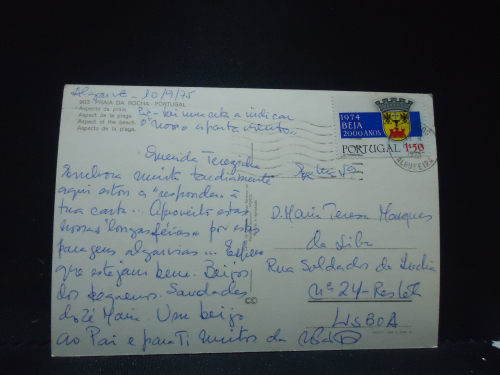 Algarve - 10/9/75
903 PRAIA DA ROCHA - PORTUGAL
Aspecto da praia.
Aspect de la plage.
Aspect of the beach.
Aspecto de la playa.
vai uma seta a indicar
o nosso apartamento...
Querida Terezinha
Embora muito tardiamente
aqui estou a "responder" à
tua carta... Aproveito estas
nossas "longas férias" por estas
paragens algarvias... Espero
que estejam bem. Beijos
dos pequenos. Saudades
do Zé Maria. Um beijo
ao Pai e para Ti muitos da
1974
BEJA
2000 ANOS
PORTUGAL 1$50
ALBUFEIRA
D. Maria Teresa Marques
da Silva
Rua Soldados da Índia
nº 24 - Restelo
LISBOA